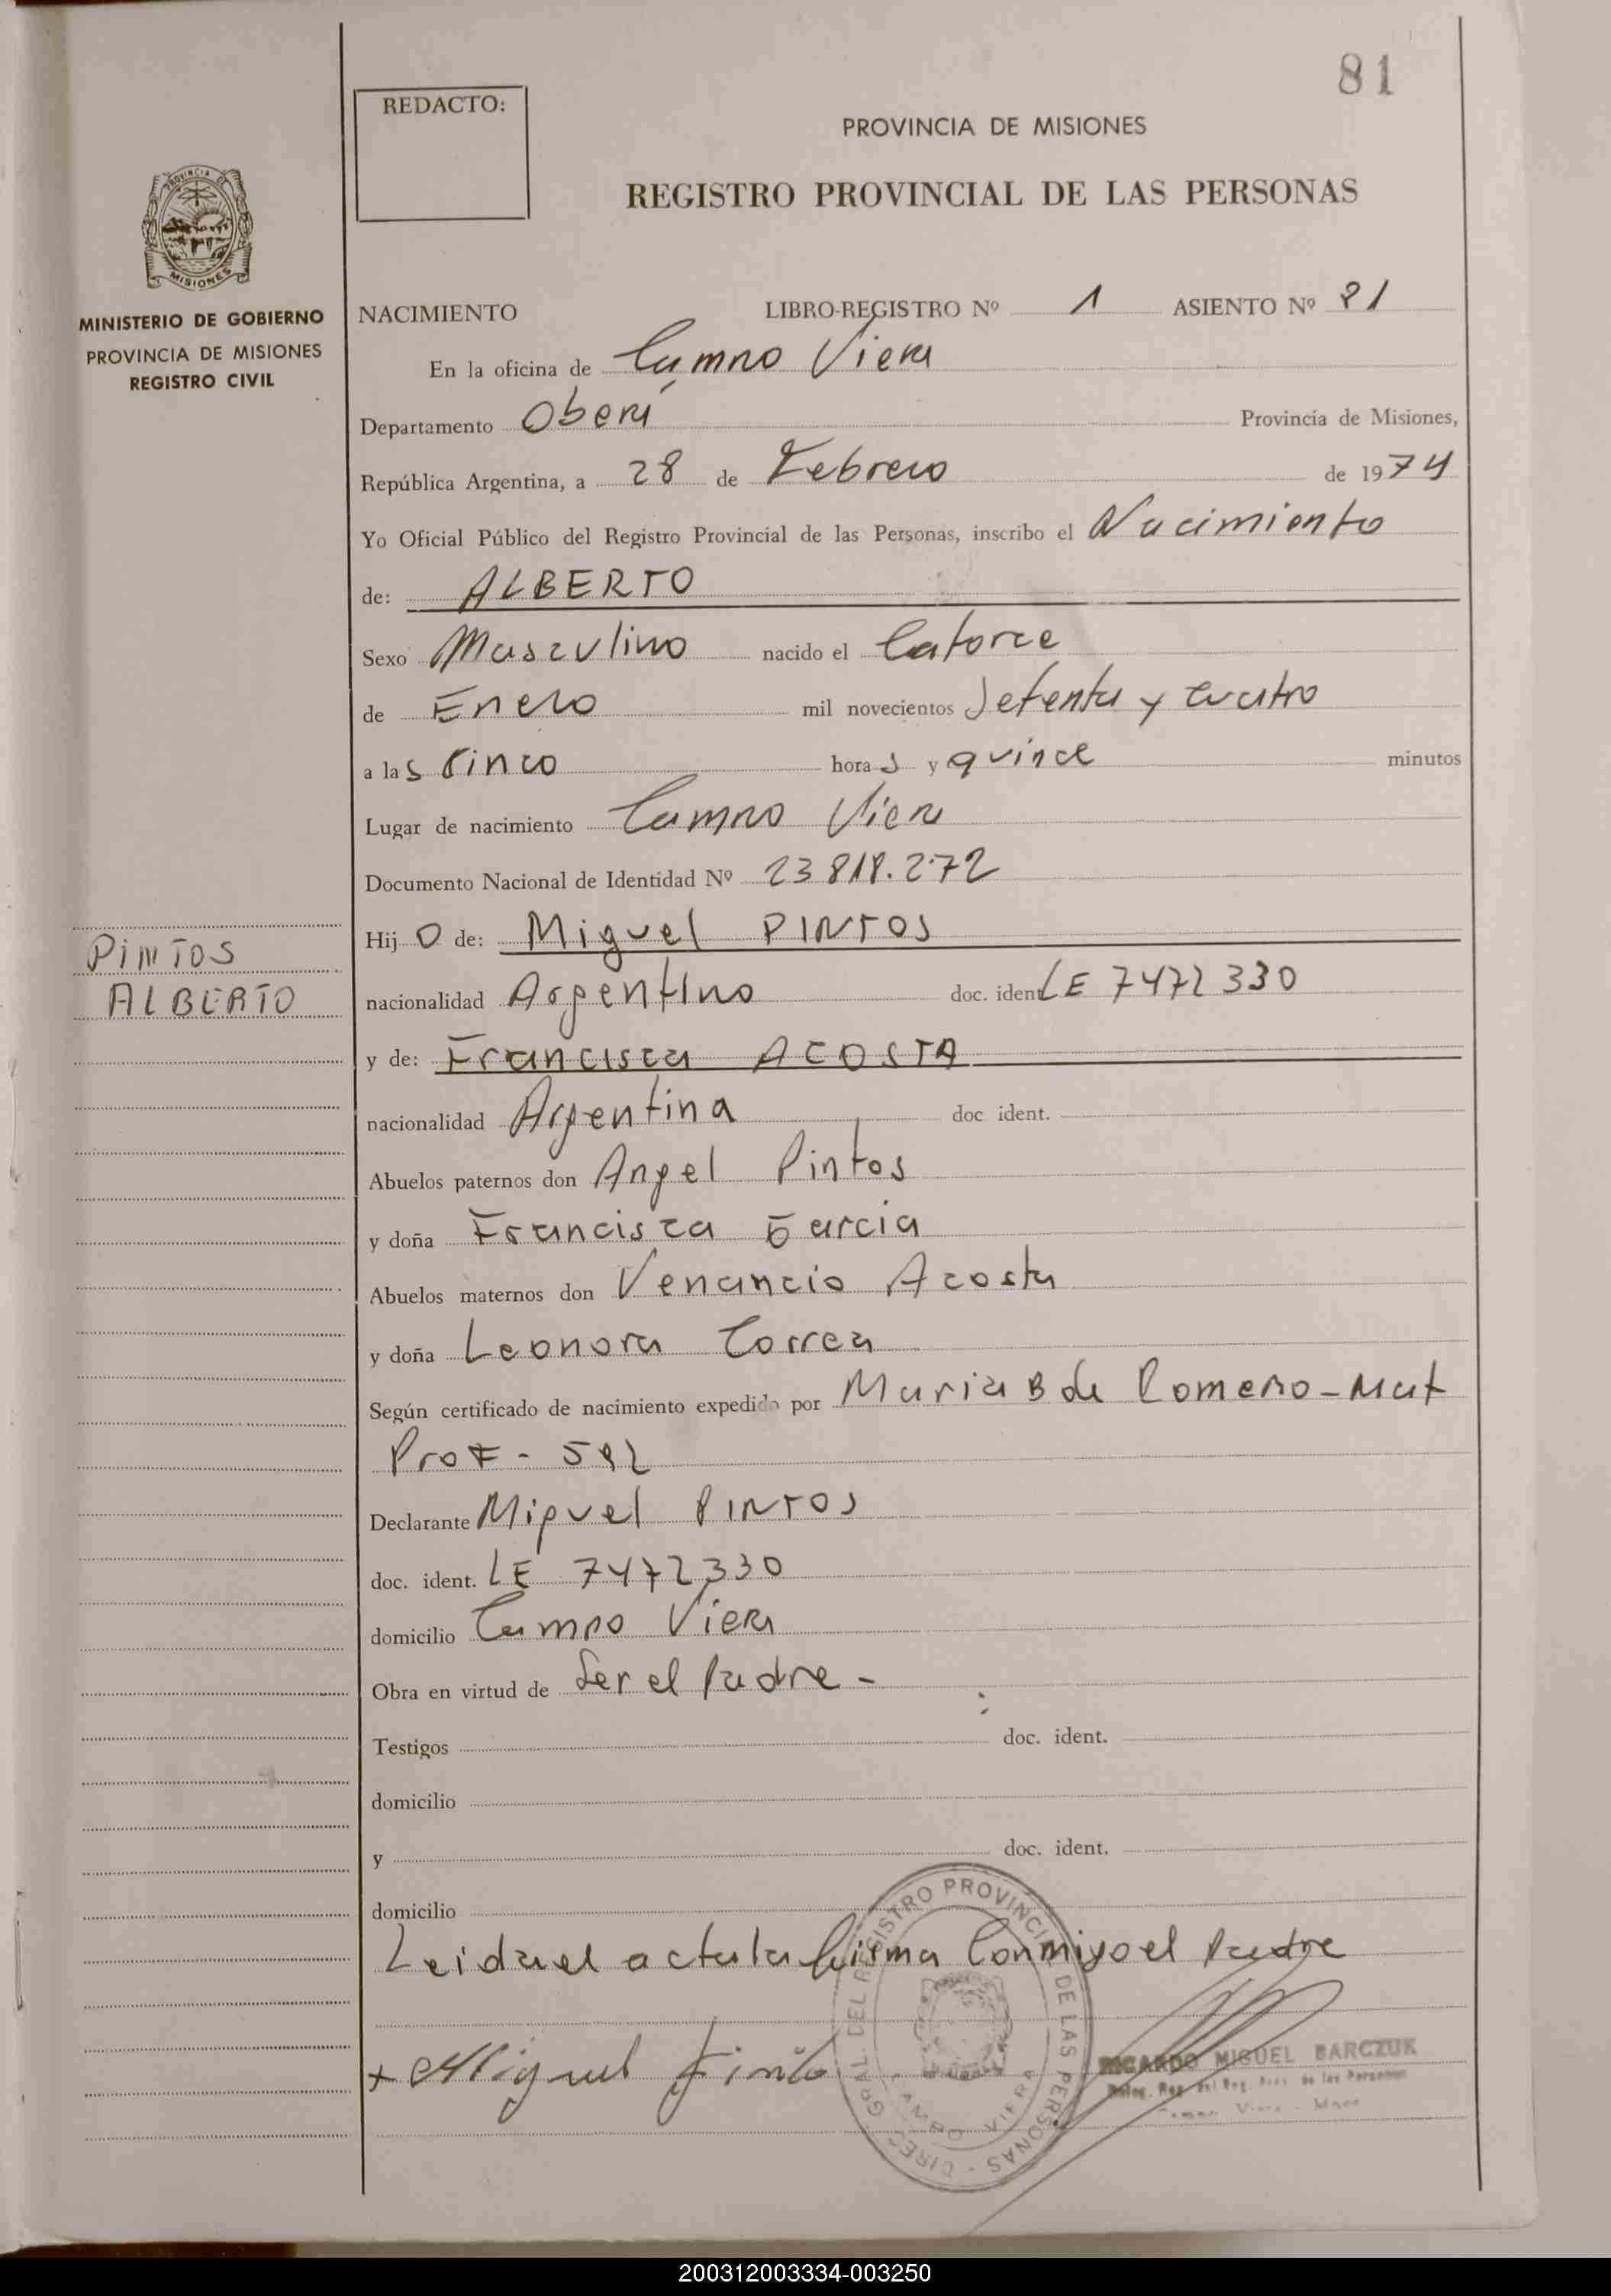 81
REDACTO:
PROVINCIA DE MISIONES
REGISTRO PROVINCIAL DE LAS PERSONAS
PROVINCIA DE
MISIONES
MINISTERIO DE GOBIERNO
PROVINCIA DE MISIONES
REGISTRO CIVIL
NACIMIENTO LIBRO-REGISTRO Nº 1 ASIENTO Nº 81
En la oficina de Campo Viera
Departamento Oberá Provincia de Misiones,
República Argentina, a 28 de Febrero de 1974
Yo Oficial Público del Registro Provincial de las Personas, inscribo el Nacimiento
de: ALBERTO
Sexo Masculino nacido el Catorce
de Enero mil novecientos Setenta y cuatro
a las Cinco horas y quince minutos
Lugar de nacimiento Campo Viera
Documento Nacional de Identidad Nº 23818.272
Hijo de: Miguel PINTOS
PINTOS
ALBERTO
nacionalidad Argentino doc. ident LE 7472330
y de: Francisca ACOSTA
nacionalidad Argentina doc ident.
Abuelos paternos don Angel Pintos
y doña Francisca Garcia
Abuelos maternos don Venancio Acosta
y doña Leonora Correa
Según certificado de nacimiento expedido por Maria B de Romero - Mat
Prof -
Declarante Miguel PINTOS
doc. ident. LE 7472330
domicilio Campo Viera
Obra en virtud de Ser el Padre -
Testigos doc. ident.
domicilio
y doc. ident.
domicilio
Leida el acta la firma Conmigo el Padre
+ Miguel Pinto
DIREC GRAL DEL REGISTRO PROVINCIAL DE LAS PERSONAS
CAMPO VIERA
RICARDO MIGUEL BARCZUK
Reg. Prov. de las Personas
Campo Viera - Mnes
200312003334-003250